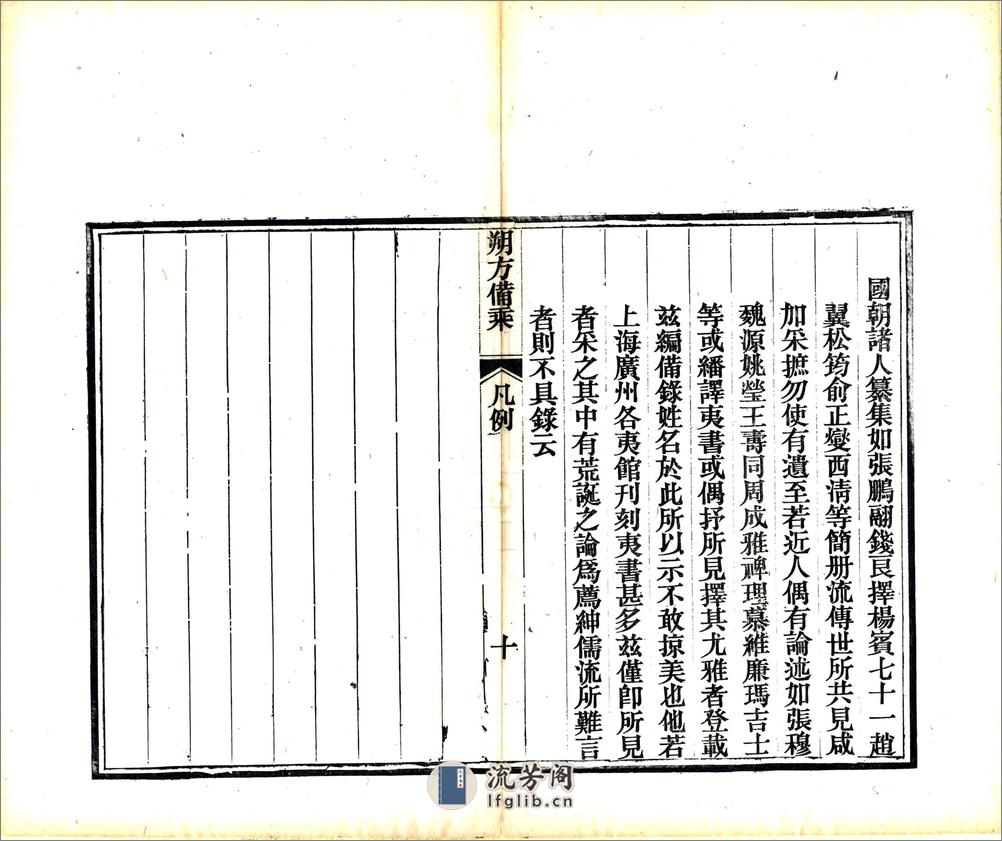 國朝諸人纂集如張鵬翮錢良擇楊賓七十一趙
翼松筠俞正燮西淸等簡册流傳世所共見咸
加采摭勿使有遺至若近人偶有論述如張穆
魏源姚瑩王壽同周成雅禆理慕維廉瑪吉士
等或繙譯夷書或偶抒所見擇其尤雅者登載
兹編備錄姓名於此所以示不敢掠美也他若
上海廣州各夷館刊刻夷書甚多兹僅卽所見
者采之其中有荒誕之論爲薦紳儒流所難言
者則不具錄云
朔方備乘
凡例
十
流芳阁
lfglib.cn